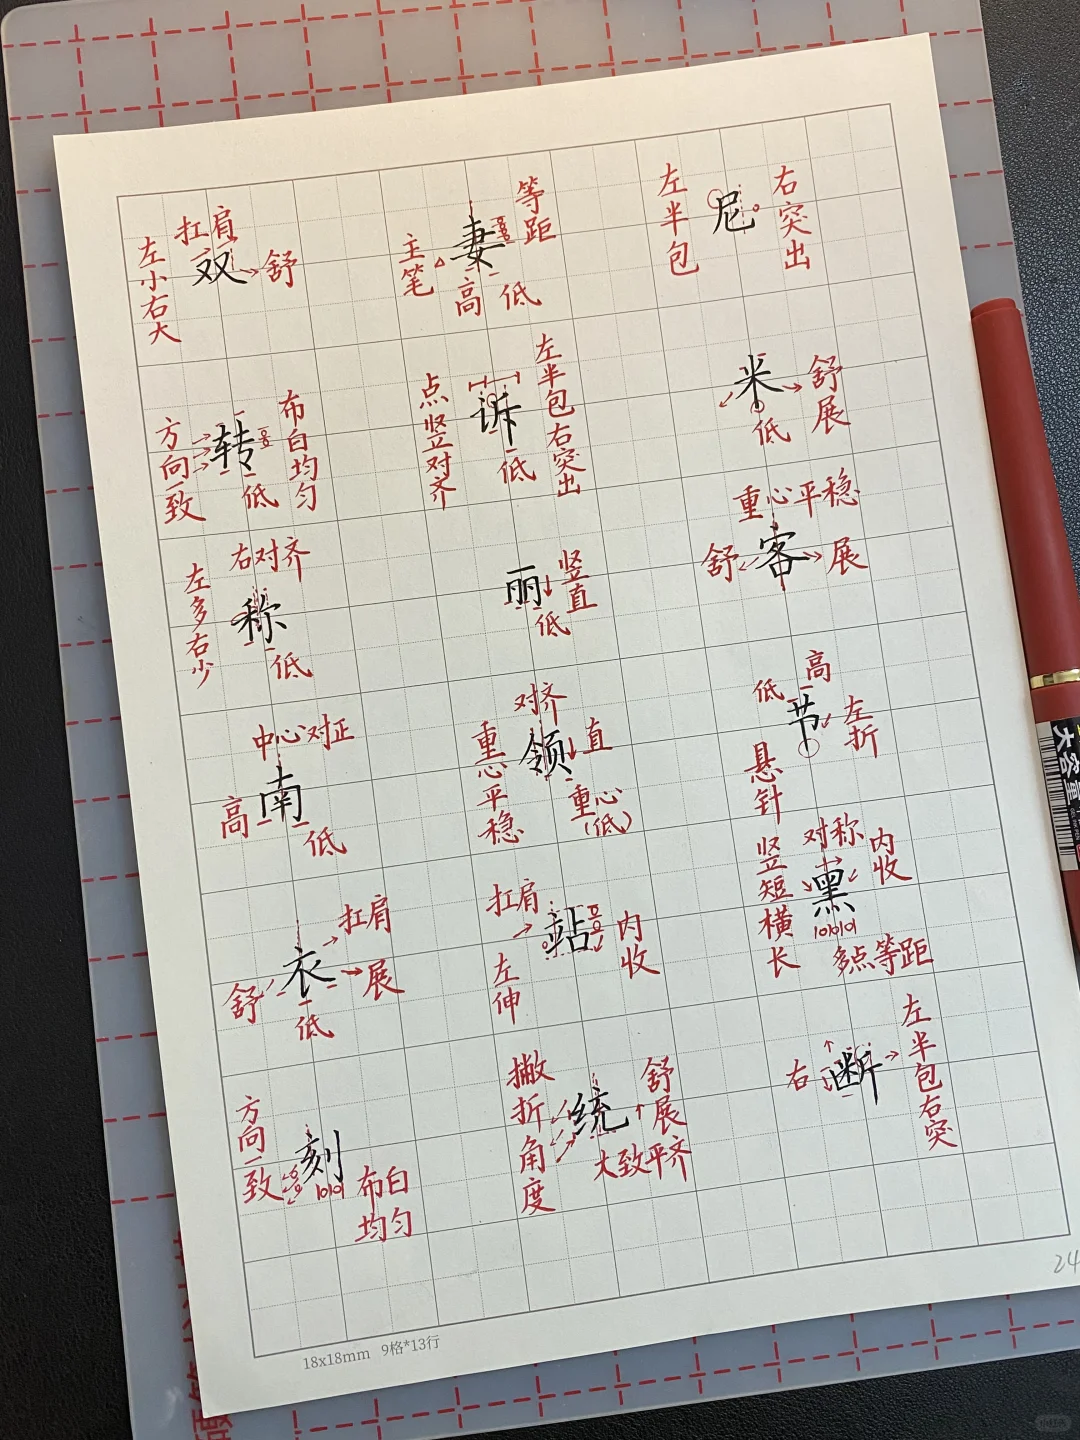 左小右大
扛肩
双
舒
主笔
妻
等距
高
低
左半包
尼
右突出
方向一致
转
布白均匀
低
点竖对齐
诉
左半包右突出
低
米
舒展
低
左多右少
右对齐
称
低
丽
竖直
低
重心平稳
舒
客
展
中心对正
南
高
低
对齐
重心平稳
领
直
重心
(低)
高
低
节
左折
悬针
扛肩
衣
舒
展
低
扛肩
站
内收
左伸
对称
内收
黑
竖短横长
多点等距
方向一致
刻
布白
均匀
撇折角度
统
舒展
大致平齐
右
断
左半包右突
24
18x18mm 9格*13行
大容量
小红书